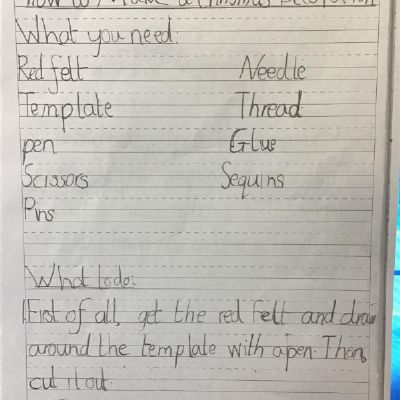 How to make a Christmas decoration
What you need:
Red felt Needle
Template Thread
pen Glue
Scissors Sequins
Pins
What to do:
First of all, get the red felt and draw
around the template with a pen. Then,
cut it out.